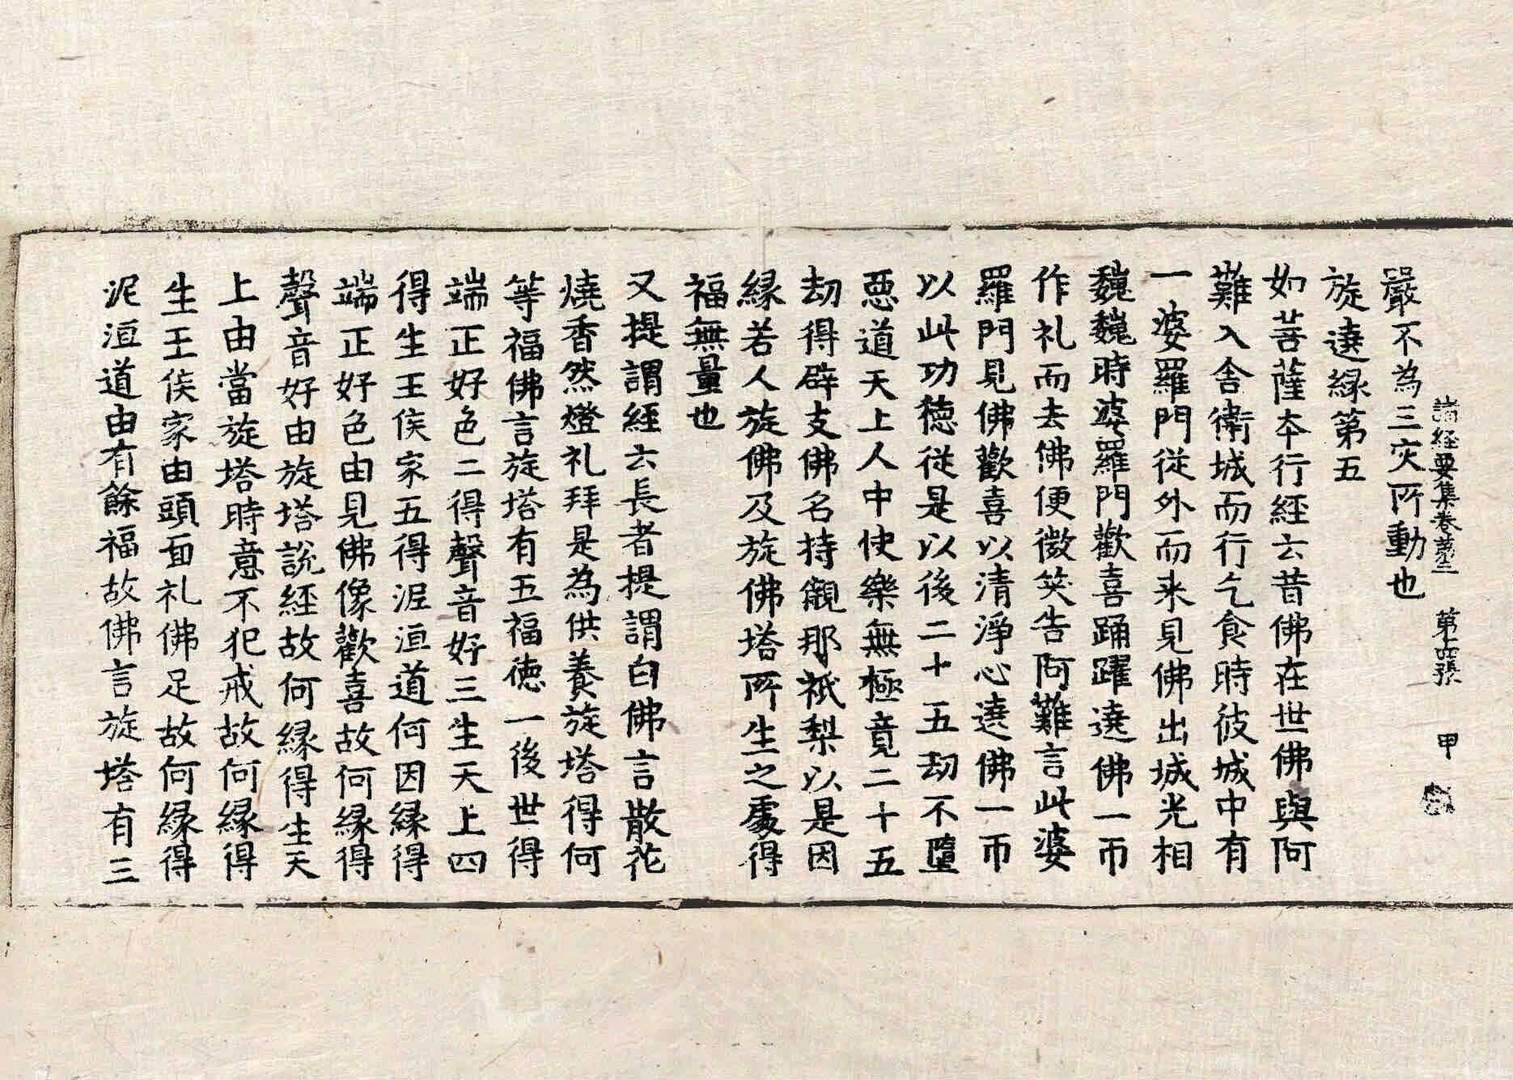 諸經要集卷第三 第十四張 甲
嚴不為三灾所動也
旋遶縁第五
如菩薩本行經云昔佛在世佛與阿
難入舍衛城而行乞食時彼城中有
一婆羅門従外而来見佛出城光相
巍巍時婆羅門歡喜踊躍遶佛一帀
作礼而去佛便微笑告阿難言此婆
羅門見佛歡喜以清淨心遶佛一帀
以此功徳従是以後二十五劫不墮
惡道天上人中快樂無極竟二十五
劫得辟支佛名持覶那祇梨以是因
縁若人旋佛及旋佛塔所生之處得
福無量也
又提謂經云長者提謂白佛言散花
燒香然燈礼拜是為供養旋塔得何
等福佛言旋塔有五福徳一後世得
端正好色二得聲音好三生天上四
得生王侯家五得泥洹道何因縁得
端正好色由見佛像歡喜故何縁得
聲音好由旋塔說經故何縁得生天
上由當旋塔時意不犯戒故何縁得
生王侯家由頭面礼佛足故何縁得
泥洹道由有餘福故佛言旋塔有三